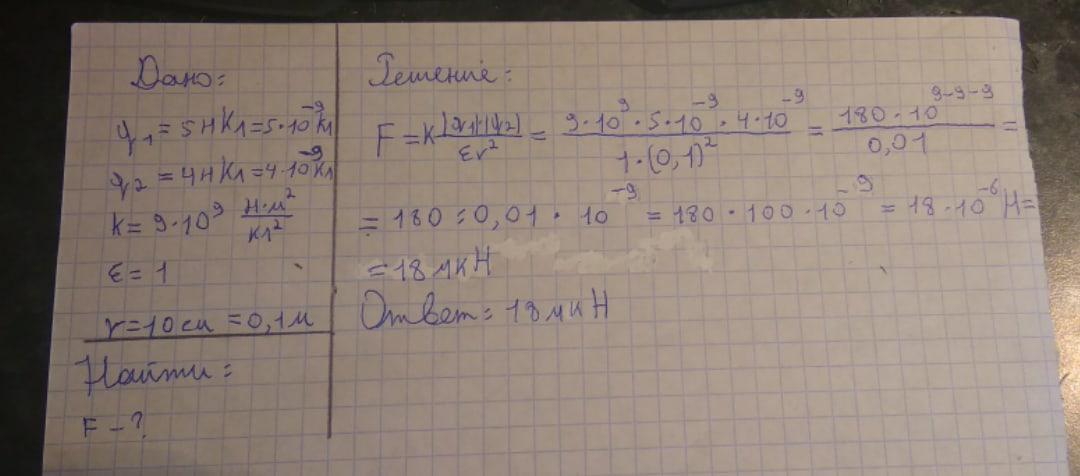 Дано:
q₁ = 5нКл=5·10⁻⁹Кл
q₂ = 4нКл=4·10⁻⁹Кл
k= 9·10⁹ Н·м²/Кл²
ε= 1
r=10см =0,1м
Найти:
F - ?
Решение:
F =k |q₁|·|q₂|/εr² = 9·10⁹·5·10⁻⁹·4·10⁻⁹/1·(0,1)² = 180·10⁹⁻⁹⁻⁹/0,01 =
= 180:0,01·10⁻⁹ = 180·100·10⁻⁹ = 18·10⁻⁶Н=
=18мкН
Ответ: 18мкН